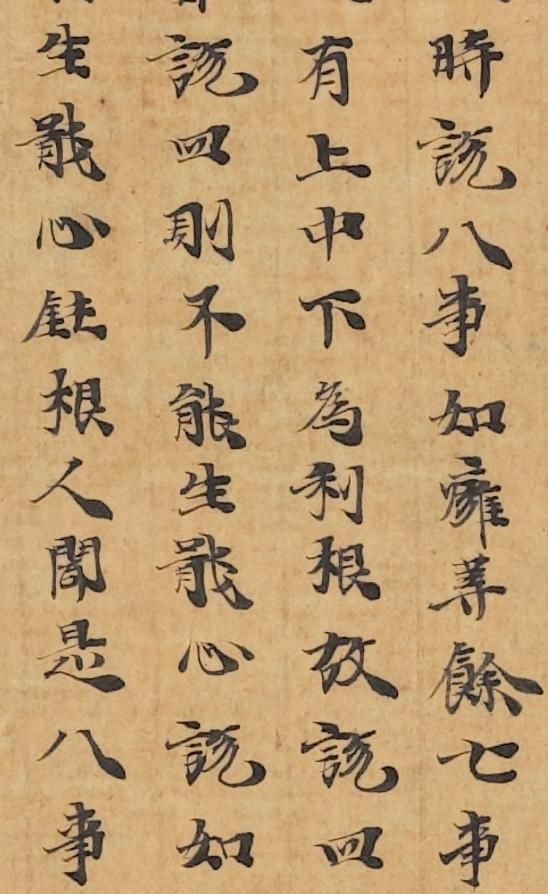 時說八事如癰等餘七事
有上中下為利根故說四
說四則不能生猒心說如
生猒心鈍根人聞是八事